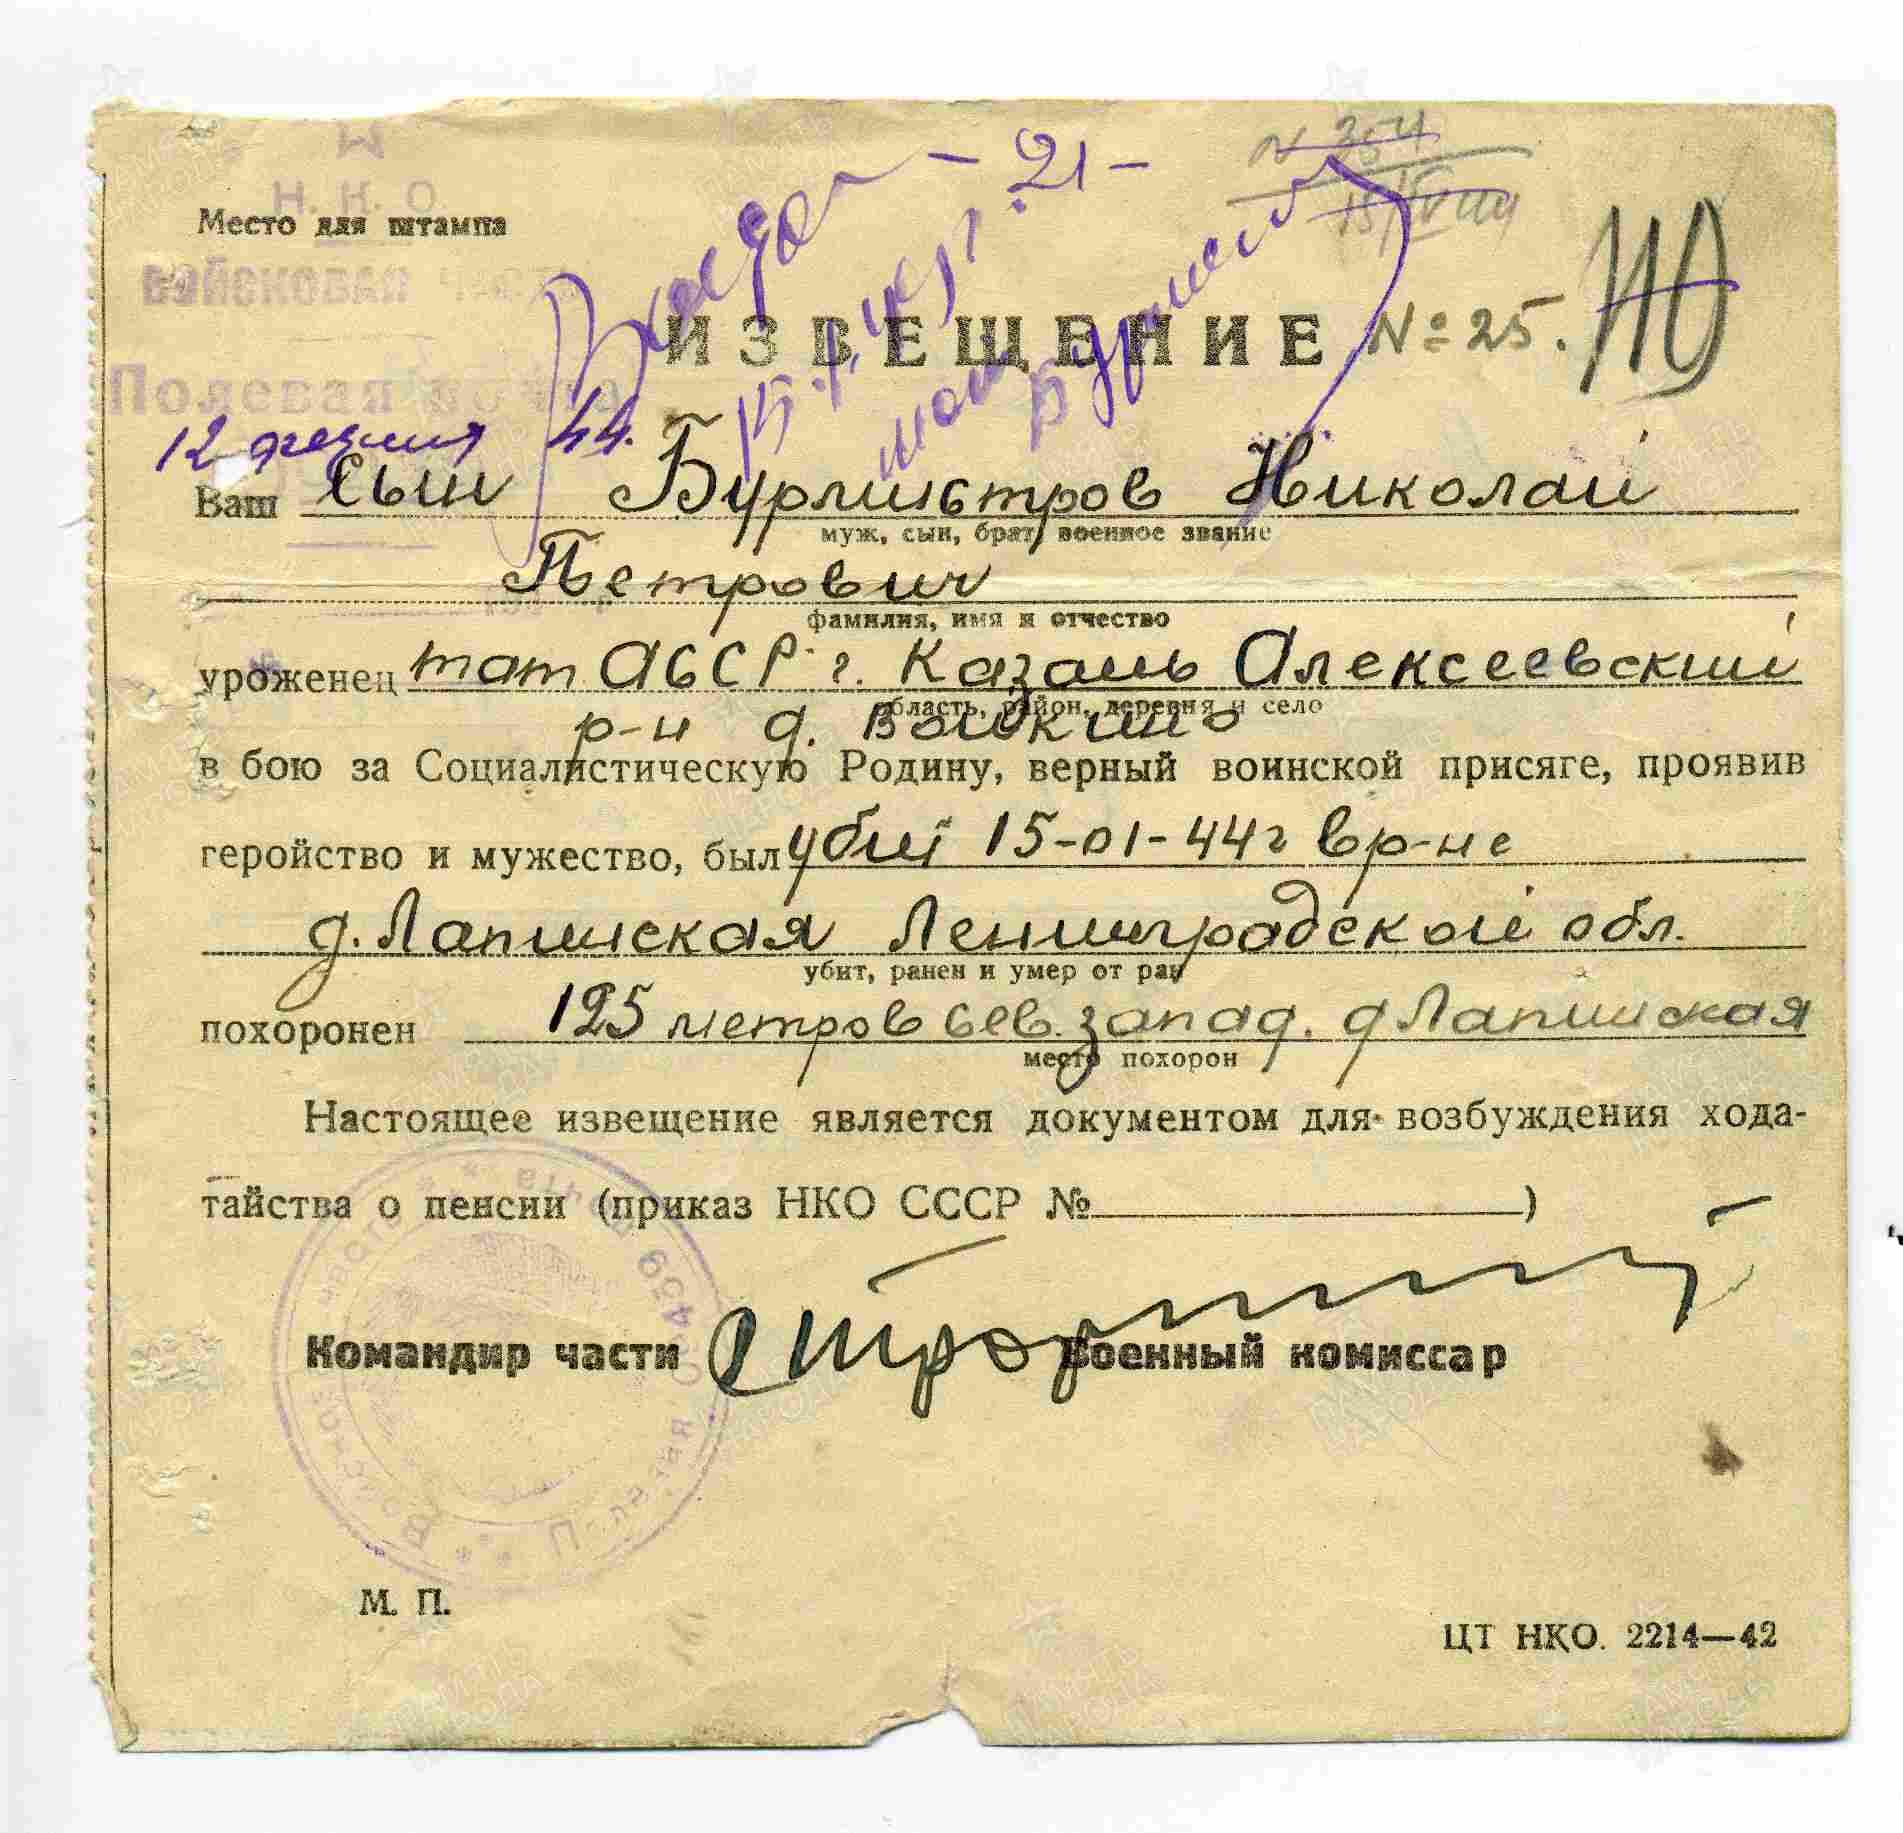 Н. К. О.
Место для штампа
ВОЙСКОВАЯ ЧАСТЬ
- 21 -
ИЗВЕЩЕНИЕ № 25.
Полевая почта
12 44.
Ваш сын Бурмистров Николай
муж, сын, брат, военное звание
Петрович
фамилия, имя и отчество
уроженец тат АССР г. Казань Алексеевский
область, район, деревня и село
р-н д. Войкино
в бою за Социалистическую Родину, верный воинской присяге, проявив
геройство и мужество, был убит 15-01-44г в р-не
д. Лапинская Ленинградской обл.
убит, ранен и умер от ран
похоронен 125 метров сев. запад. д Лапинская
место похорон
Настоящее извещение является документом для возбуждения хода-
тайства о пенсии (приказ НКО СССР № )
Командир части Военный комиссар
М. П.
ЦТ НКО. 2214—42